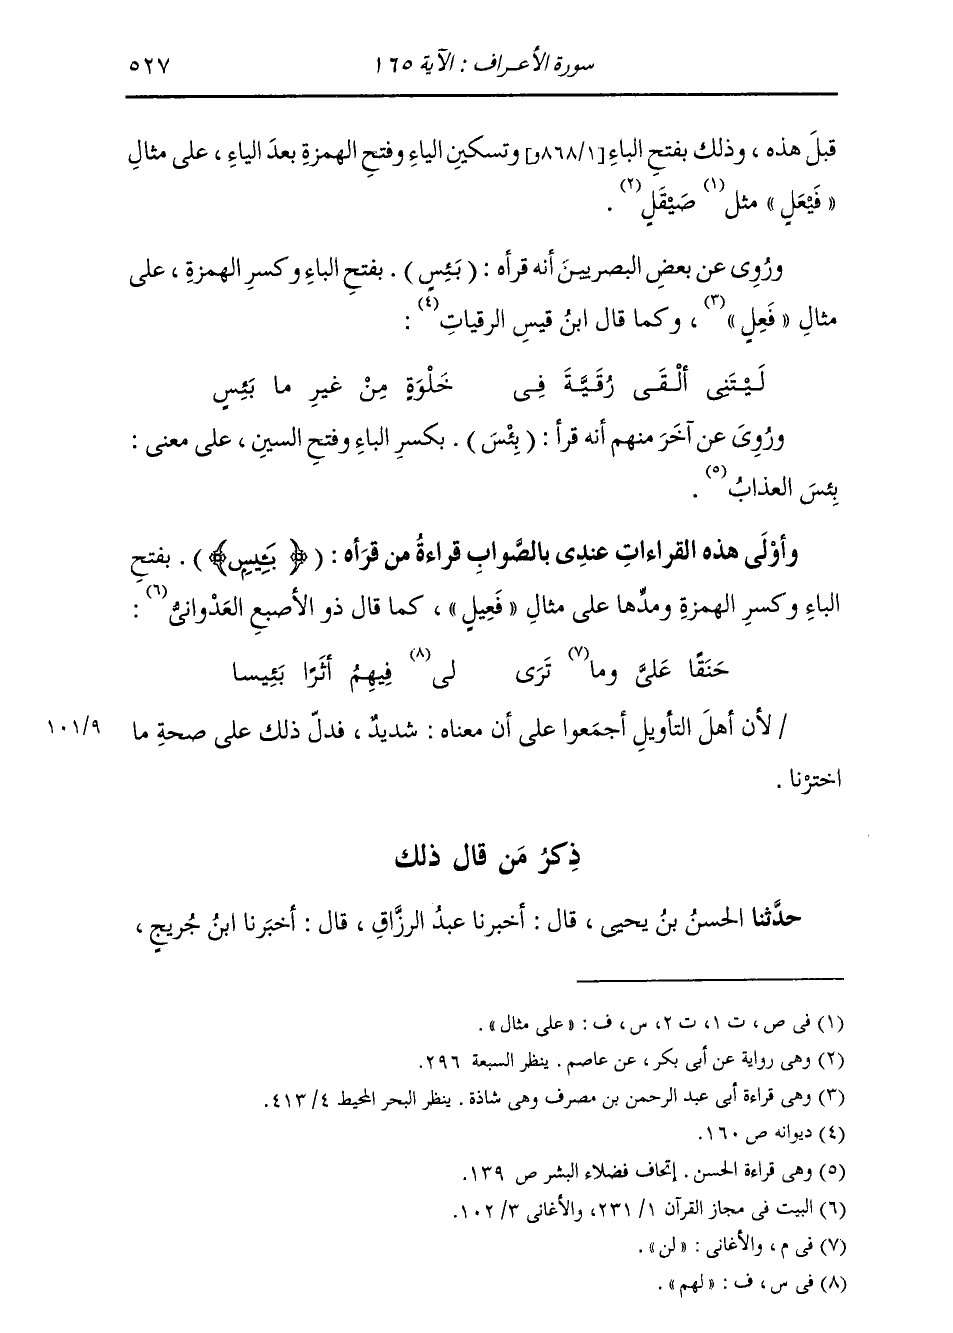 سورة الأعراف : الآية ١٦٥ ٥٢٧
قبلَ هذه ، وذلك بفتحِ الباءِ [٨٦٨/١و] وتسكينِ الياءِ وفتحِ الهمزةِ بعدَ الياءِ ، على مثالِ
« فَيْعَلٍ » مثل(١) صَيْقَلٍ(٢) .
ورُوِى عن بعضِ البصريينَ أنه قرأه : ( بَئِسٍ ) . بفتحِ الباءِ وكسرِ الهمزةِ ، على
مثالِ « فَعِلٍ »(٣) ، وكما قال ابنُ قيسِ الرقياتِ(٤) :
لَـيْـتَنِى أَلْـقَـى رُقَـيَّـةَ فِـى خَلْوَةٍ مِنْ غيرِ ما بَئِسٍ
ورُوِىَ عن آخَرَ منهم أنه قرأ : ( بِئْسَ ) . بكسرِ الباءِ وفتحِ السينِ ، على معنى :
بِئسَ العذابُ(٥) .
وأوْلَى هذه القراءاتِ عندِى بالصَّوابِ قراءةُ من قرَأه : ( ﴿ بَئِيسٍ ﴾ ) . بفتحِ
الباءِ وكسرِ الهمزةِ ومدِّها على مثالِ « فَعِيلٍ » ، كما قال ذو الأصبعِ العَدْوانىُّ(٦) :
حَنَقًا عَلىَّ وما(٧) تَرَى لى(٨) فِيهِمُ أثَرًا بَئِيسا
/ لأن أهلَ التأويلِ أجمَعوا على أن معناه : شديدٌ ، فدلّ ذلك على صحةِ ما ١٠١/٩
اخترْنا .
ذِكرُ مَن قال ذلك
حدَّثنا الحسنُ بنُ يحيى ، قال : أخبرنا عبدُ الرزَّاقِ ، قال : أخبَرنا ابنُ جُريجٍ ،
(١) فى ص ، ت ١، ت ٢، س ، ف : « على مثال » .
(٢) وهى رواية عن أبى بكر ، عن عاصم . ينظر السبعة ٢٩٦.
(٣) وهى قراءة أبى عبد الرحمن بن مصرف وهى شاذة . ينظر البحر المحيط ٤/ ٤١٣.
(٤) ديوانه ص ١٦٠.
(٥) وهى قراءة الحسن . إتحاف فضلاء البشر ص ١٣٩.
(٦) البيت فى مجاز القرآن ١/ ٢٣١، والأغانى ٣/ ١٠٢.
(٧) فى م ، والأغانى : « لن » .
(٨) فى س ، ف : « لهم » .